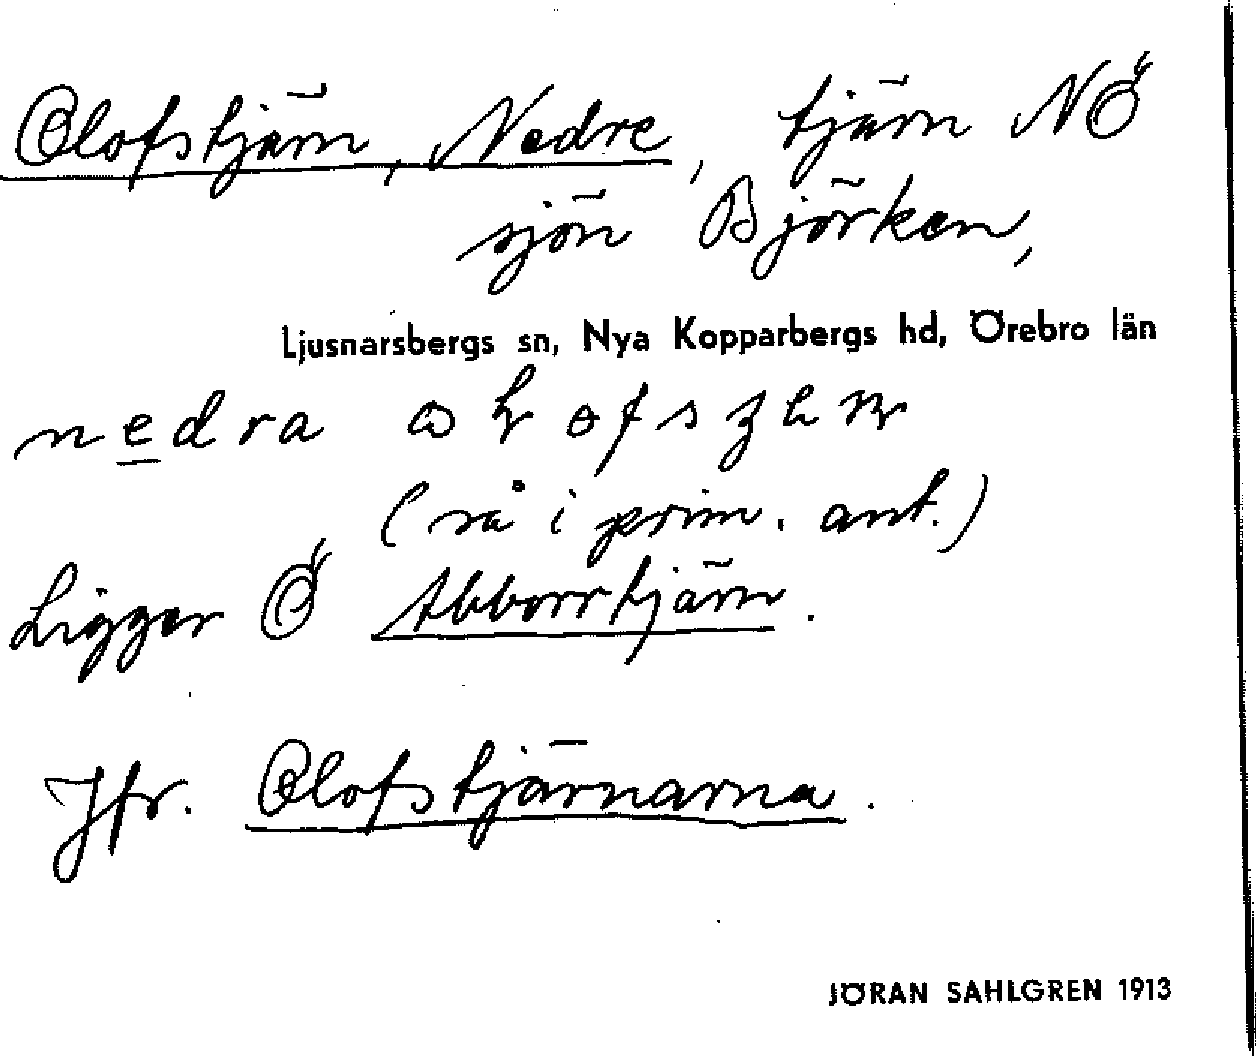 Olofstjärn, Nedre, tjärn NÖ
sjön Björken,
Ljusnarsbergs sn, Nya Kopparbergs hd, Örebro län
nedra
(så i prim. ant.)
Ligger Ö Abborrtjärn.
Jfr. Olofstjärnarna.
JÖRAN SAHLGREN 1913